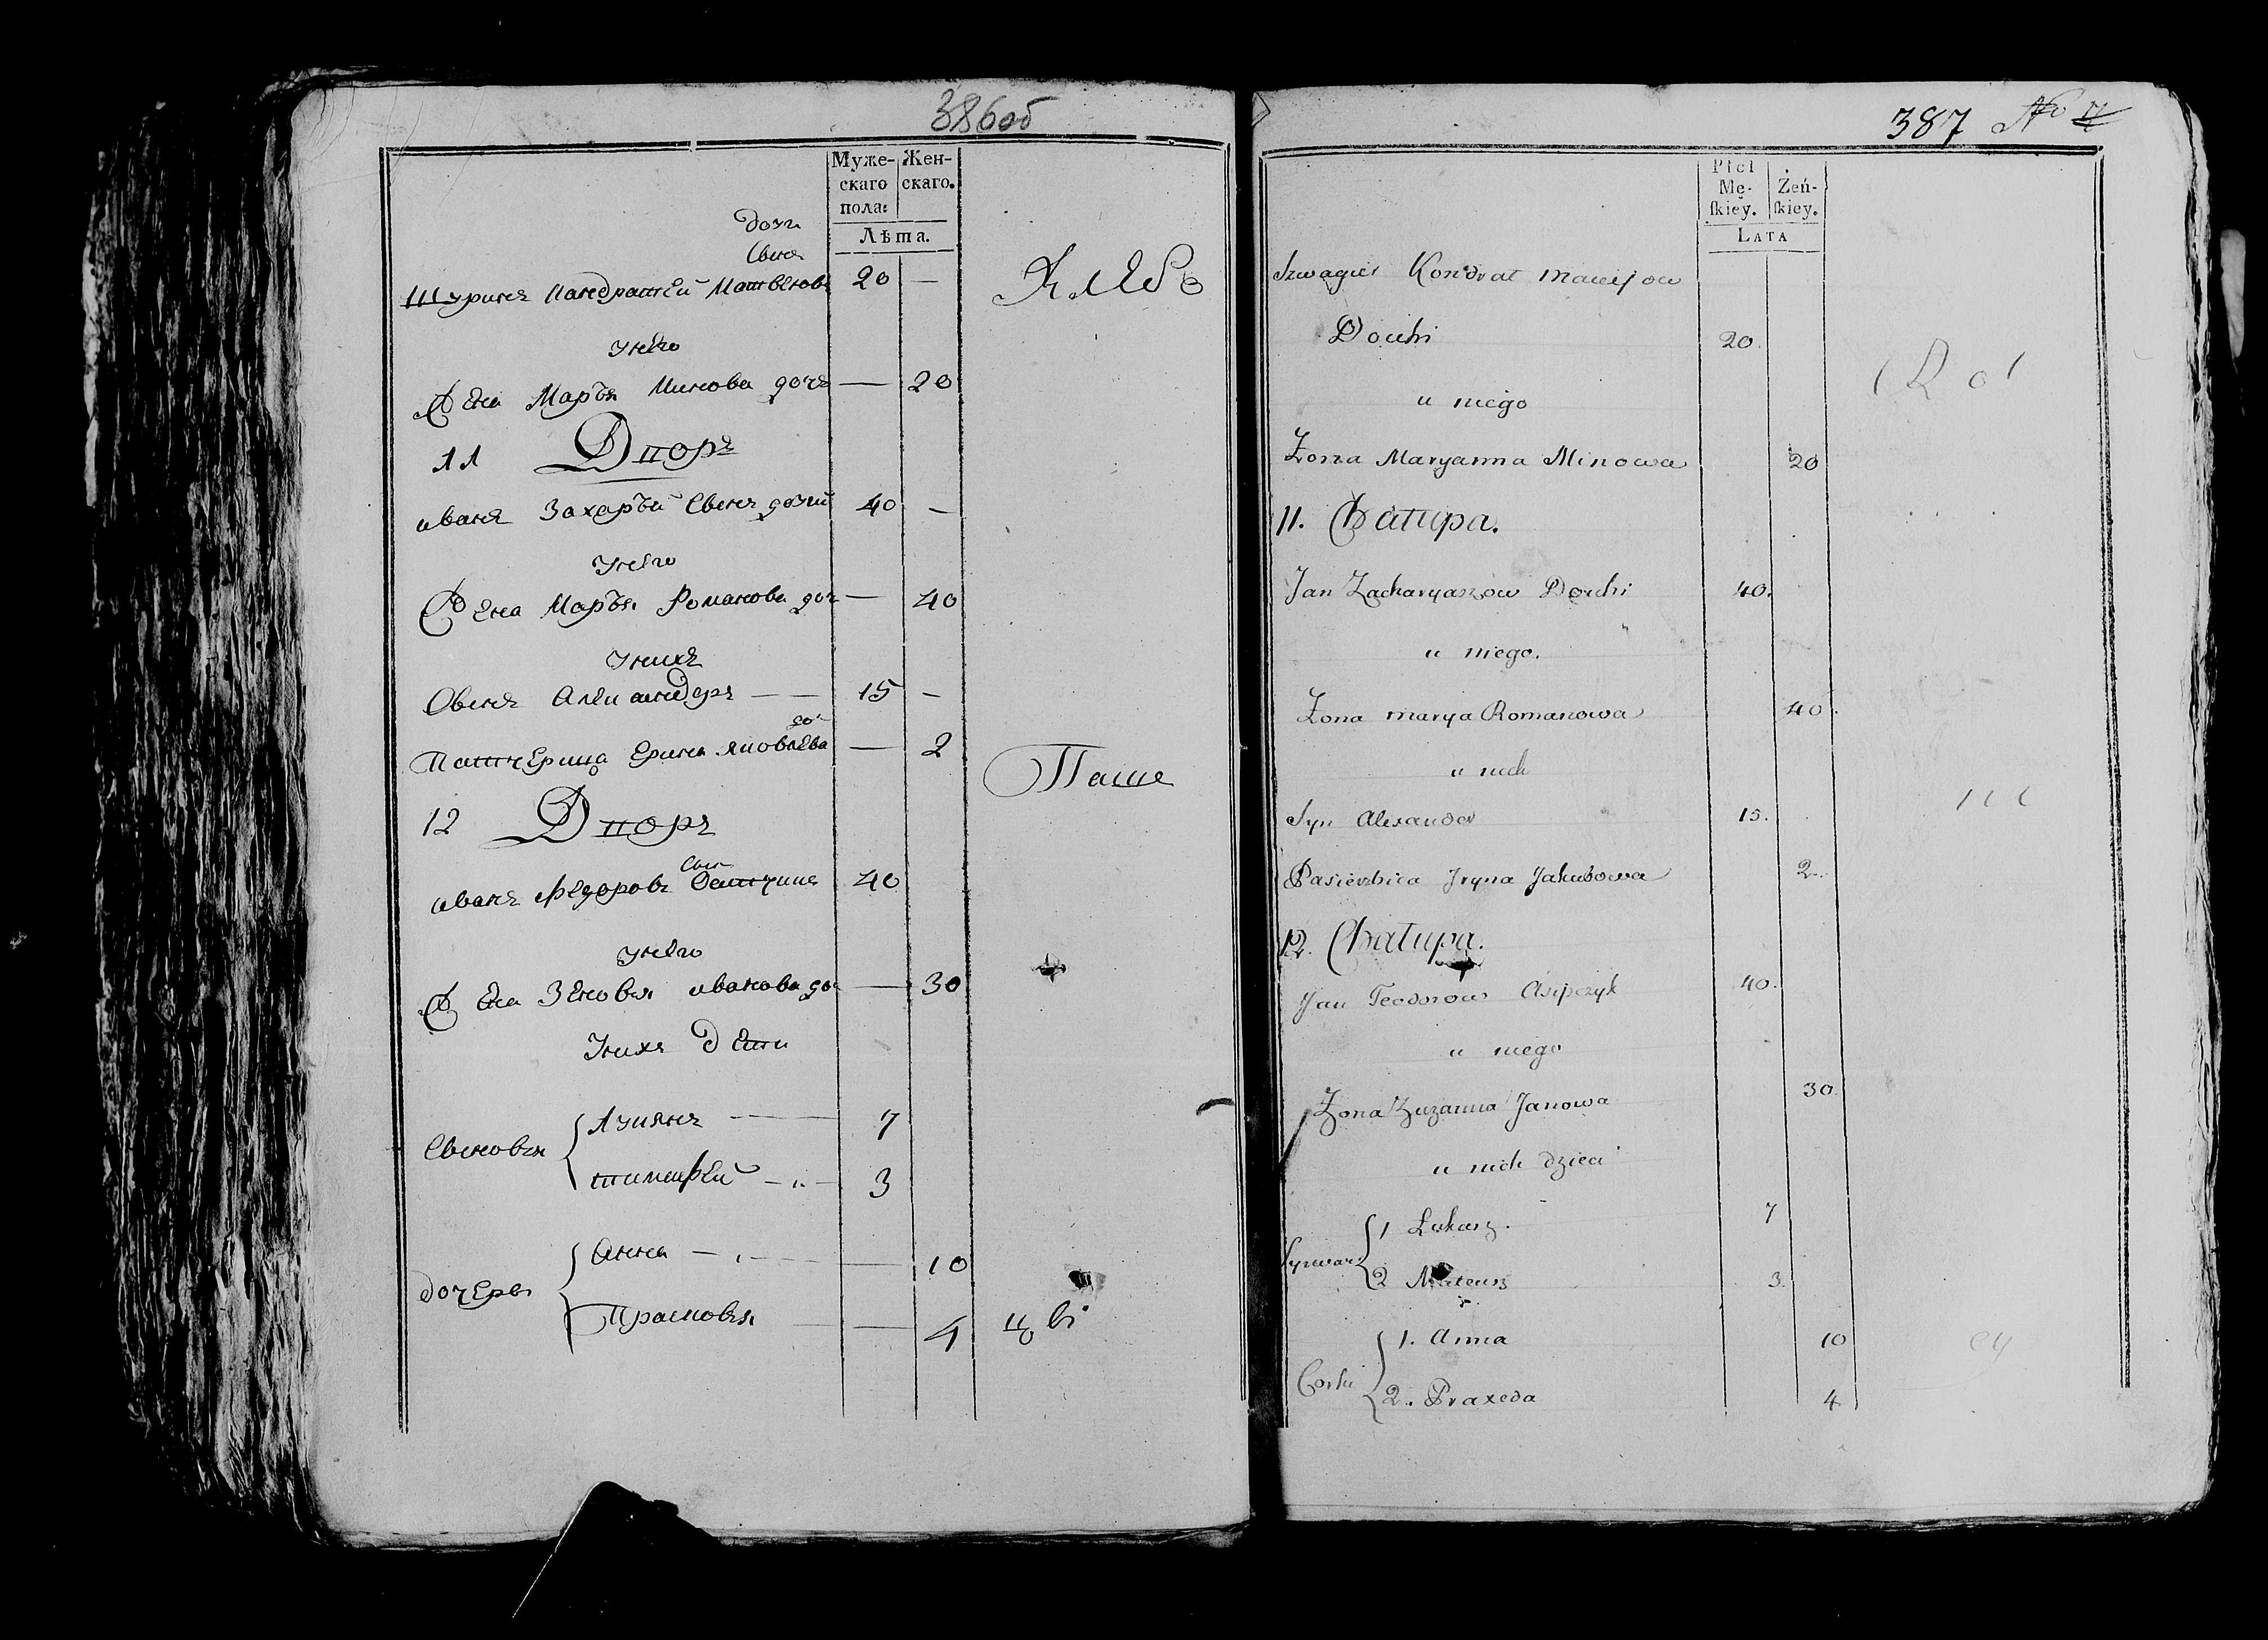 386об
Муже- Жен-
скаго скаго.
пола:
Лѣта.
дочи
Свенъ
Шуринъ Кандратей Матвеновъ 20 —
Унего
Жена Марья Минова дочь — 20
11 Дворъ
иванъ Захарьи Свенъ дочий 40 —
Унего
Жена Марья Романова доч — 40
Унихъ
Свенъ Александеръ — — 15 —
доч
Патчерица Ерина яковлева — 2
12 Дворъ
Свен
иванъ Федоровъ 40
Унего
Жена Зеновья иванова доч — 30
Унихъ дети
Свеновья
Лукянъ — 7
тимафей — 3
дочеры
Анна — 10
Прасковья — 4
Хлебъ
Паше
387 No
Płci
Mę- Żeń-
ſkiey. ſkiey.
LATA
Szwagier Kondrat Maciejow
Douhi 20
u niego
Żona Maryanna Minowa 20
11. Chałupa.
Jan Zacharyaszow Douhi 40.
u niego.
Żona marya Romanowa 40.
u nich
Syn Alexander 15.
Pasierbica Iryna Jakubowa 2.
12. Chałupa.
Jan Teodorow Asipczyk 40.
u niego
Żona Zuzanna Janowa 30.
u nich dzieci
Synowie
1 Łukasz. 7
2 Mateusz 3.
Corki
1. Anna 10
2. Praxeda 4